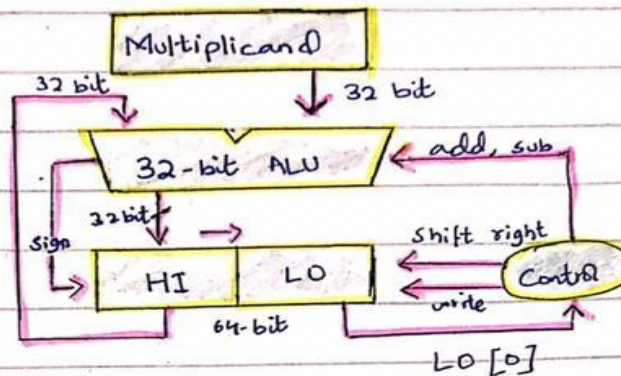 Multiplicand
32 bit
32 bit
32-bit ALU
add, sub
32bit
Sign
Shift right
HI
LO
Control
write
64-bit
LO [0]